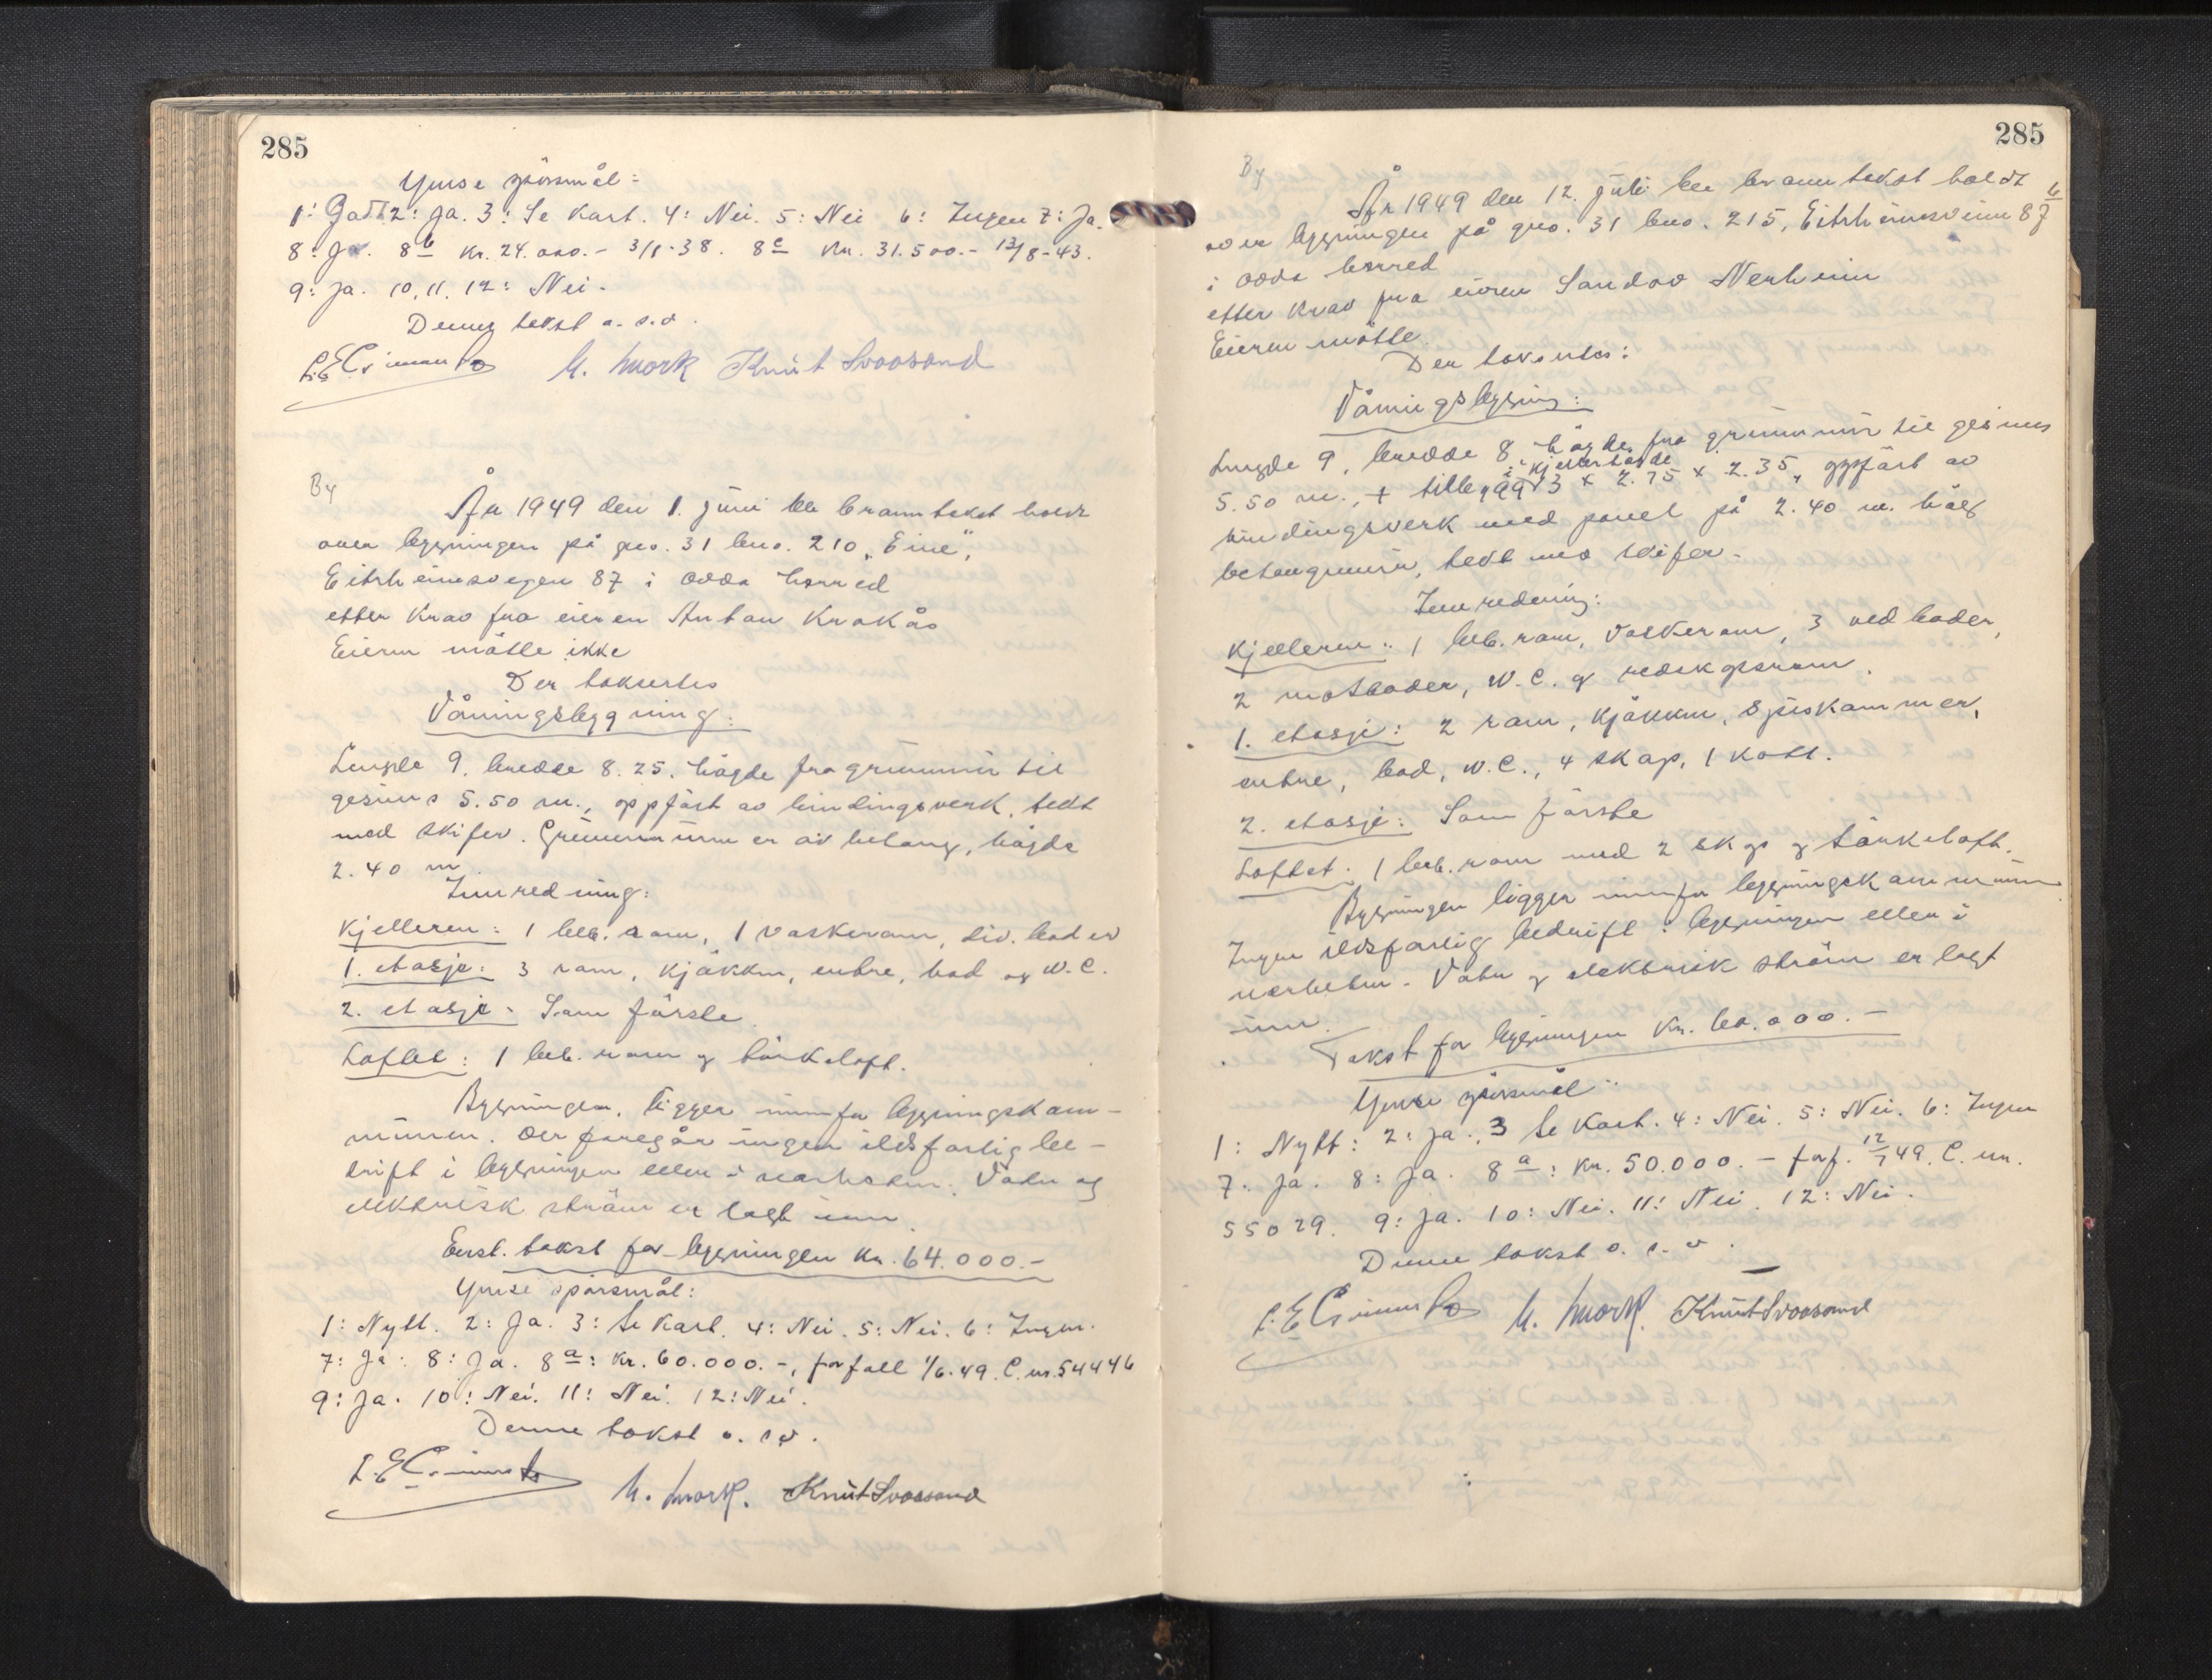 285
Ymse spörsmål:
1: Godt 2: Ja. 3: Se Kart. 4: Nei. 5: Nei 6: Ingen 7: Ja.
8: Ja. 8b Kr. 24.000.- 3/1-38. 8c Kr. 31.500.- 13/8-43.
9: Ja. 10, 11, 12: Nei.
Denne takst o.s.v.
M. Mork Knut Svoosand
By
År 1949 den 1. juni ble branntakst holdt
over bygningen på gno. 31 bno. 210 „Eine",
Eitrheimsvegen 87 i Odda herred
etter krav fra eieren Anton Krakås
Eieren mötte ikke
Der takseertes
Våningsbygning:
Lengde 9, bredde 8.25, högde fra grunnmur til
gesims 5.50 m., oppfört av bindingsverk, tekt
med skifer. Grunnmuren er av betong, högde
2.40 m.
Innredning:
Kjelleren: 1 beb. rom, 1 vaskerom, div. boder
1. etasje: 3 rom, kjökken, entre, bad og W.C.
2. etasje: Som förste
Loftet: 1 beb. rom og törkeloft.
Bygningen ligger innafor bygningskom-
munen. Der foregår ingen ildsfarlig be-
drift i bygningen eller i nærheten. Vatn og
elektrisk ström er lagt inn.
Enst. takst for bygningen Kr. 64.000.-
Ymse spörsmål:
1: Nytt. 2: Ja. 3: Se Kart. 4: Nei. 5: Nei. 6: Ingen.
7: Ja. 8: Ja. 8a: Kr. 60.000.-, forfall 1/6.49. C. nr. 54446
9: Ja. 10: Nei. 11: Nei. 12: Nei.
Denne takst o.s.v.
M. Mork. Knut Svoosand
285
By
År 1949 den 12. juli ble branntakst holdt
over bygningen på gno. 31 bno. 215, Eitrheimsveien 87 b
i Odda herred
etter krav fra eieren Sandov Nerheim
Eieren mötte.
Der takseertes:
Våningsbygning:
Lengde 9, bredde 8, högde fra grunnmur til gesims
i kjellerhögde
5.50 m., + tilbygg 3 x 2.75 x 2.35, oppfört av
bindingsverk med panel på 2.40 m. höy
betongmur, tekt med skifer.
Innredning:
Kjelleren: 1 beb. rom, vaskerom, 3 vedboder,
2 matboder, W.C. og redskapsrom.
1. etasje: 2 rom, kjökken, spiskammer,
entre, bad, W.C., 4 skap, 1 kott.
2. etasje: Som förste
Loftet: 1 beb. rom med 2 skap og törkeloft.
Bygningen ligger innafor bygningskommunen
Ingen ildsfarlig bedrift i bygningen eller i
nærheten. Vatn og elektrisk ström er lagt
inn.
Takst for bygningen Kr. 60.000.-
Ymse spörsmål:
1: Nytt: 2: Ja., 3 Se Kart. 4: Nei. 5: Nei. 6: Ingen
7: Ja. 8: Ja. 8a: Kr. 50.000.- forf. 12/7 49. C. nr.
55029. 9: Ja. 10: Nei. 11: Nei. 12: Nei.
Denne takst o.s.v.
M. Mork. Knut Svoosand